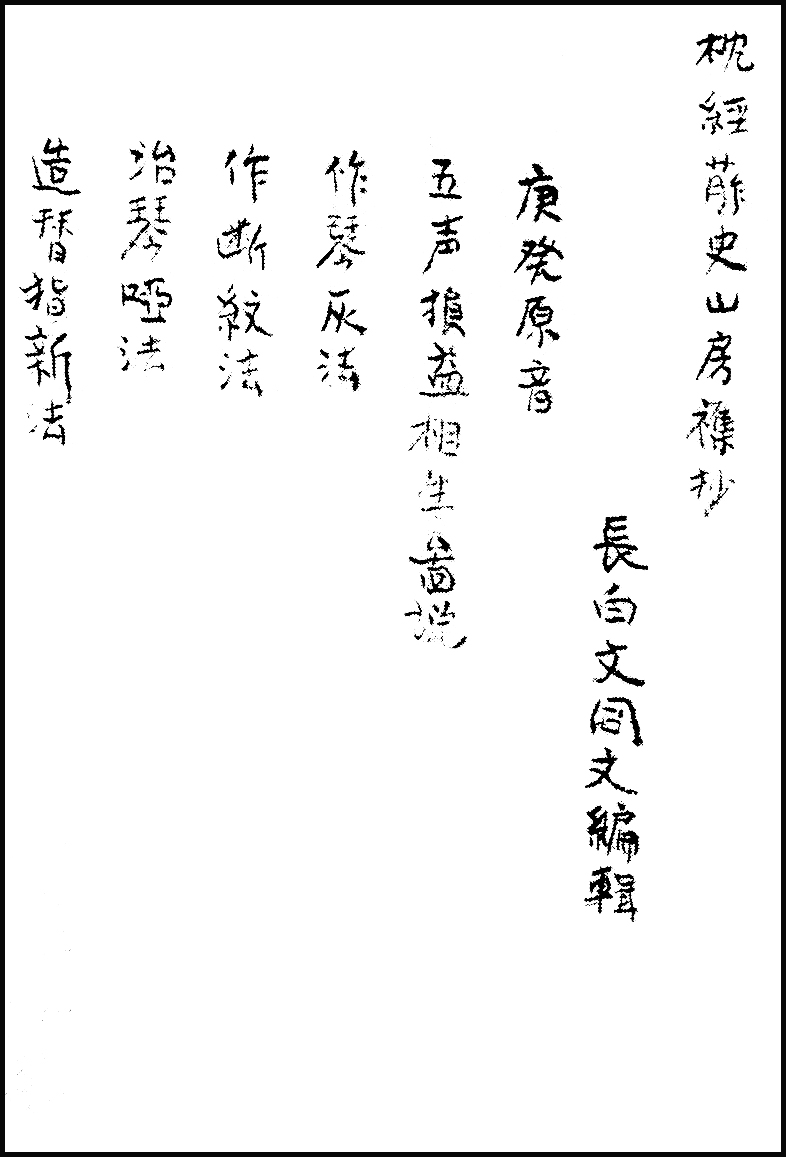 枕經葄史山房襍抄
長白文同文編輯
庚癸原音
五声損益相生啚説
作琴灰法
作断紋法
治琴啞法
造替指新法